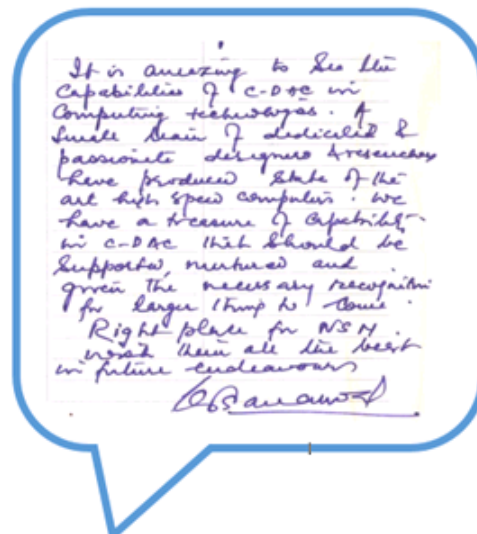 It is amazing to see the
Capabilities of C-DAC in
Computing technologies. A
Small team of dedicated &
passionate designers & researchers
have produced State of the
art high speed computers. We
have a treasure of Capabilities
in C-DAC that should be
Supported, nurtured and
given the necessary recognition
for larger things to come.
Right place for NSM.
wish them all the best
in future endeavours